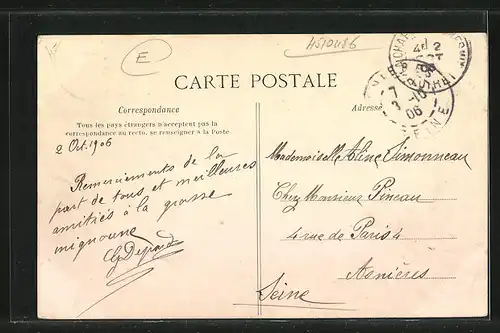 E
4510486
CARTE POSTALE
Correspondance
Tous les pays étrangers n'acceptent pas la
correspondance au recto, se renseigner à la Poste
Adresse
2 Oct. 1906
Remerciements de la
part de tous et meilleures
amitiés à la grosse
mignonne
Mademoiselle Aline Simonneau
Chez Monsieur Pineau
4 rue de Paris 4
Asnières
Seine
7
3 -10
06
SEINE